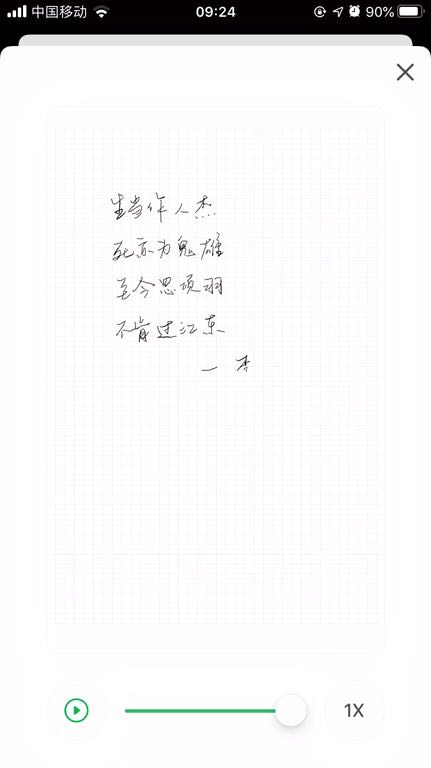 中国移动 09:24 90%
生当作人杰
死亦为鬼雄
至今思项羽
不肯过江东
一 李
1X